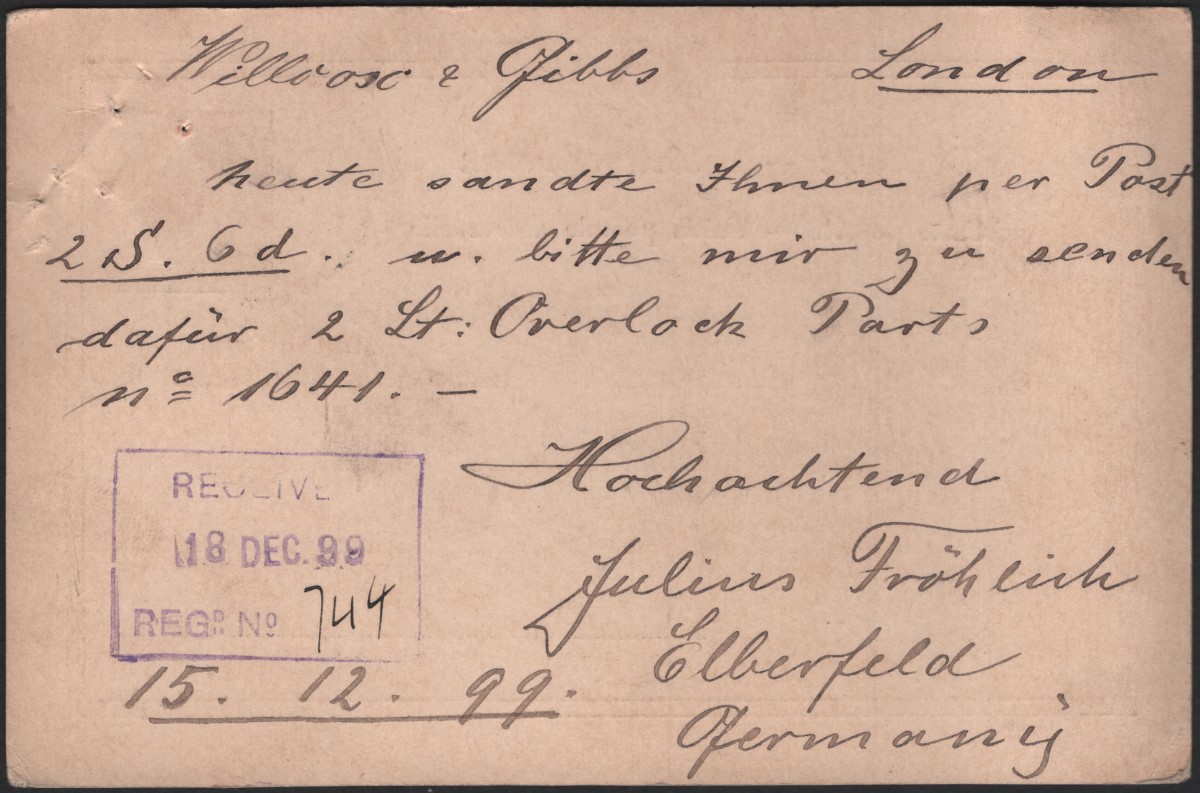 Willcox & Gibbs London
heute sandte Ihnen per Post
2 S. 6 d. u. bitte mir zu senden
dafür 2 St: Overlock Parts
no 1641. —
Hochachtend
Julius Fröhlich
Elberfeld
Germany
RECEIVE
18 DEC. 99
REGR. No 744
15. 12. 99.